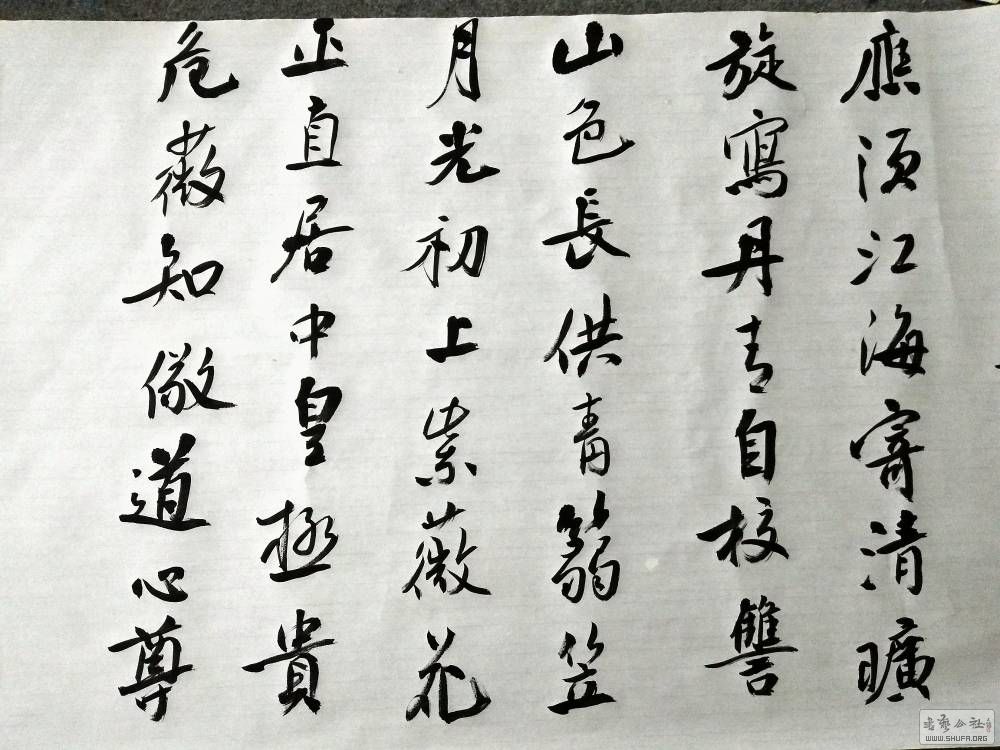 應須江海寄清曠
旋寫丹青自校讐
山色長供青篛笠
月光初上紫薇花
正直居中皇極貴
危薇知儆道心尊
書藝公社
WWW.SHUFA.ORG